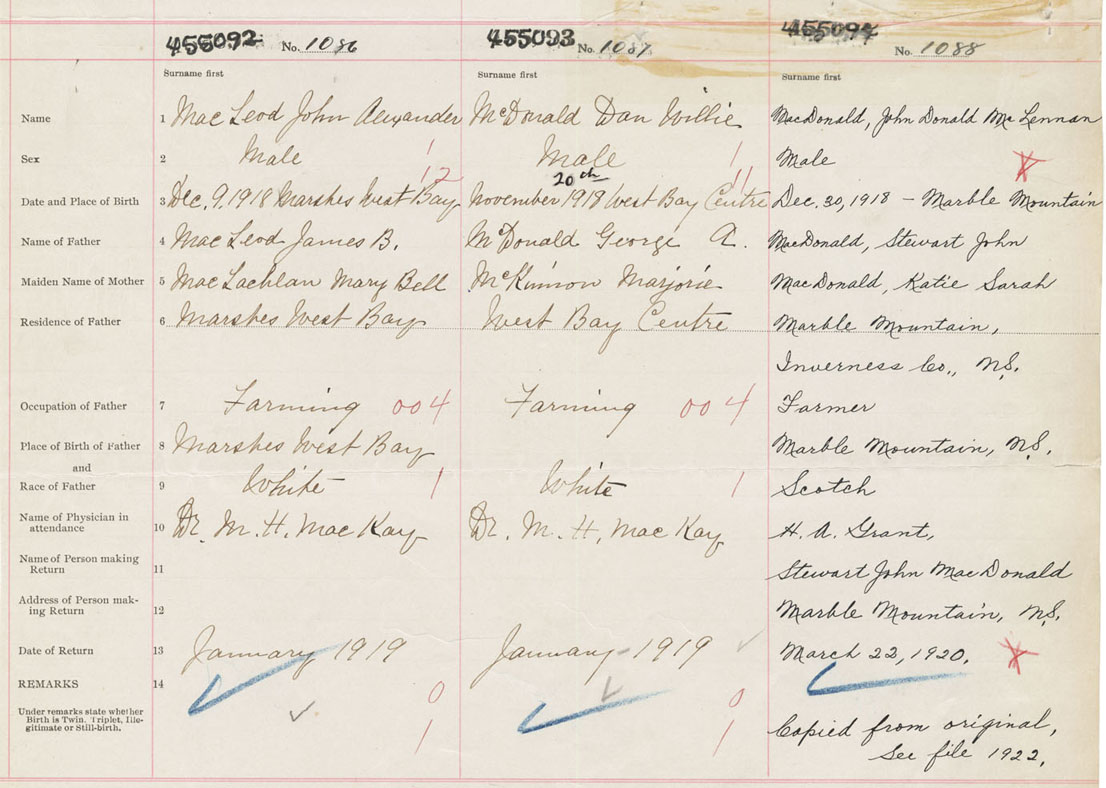 455092 No. 1086 455093 No. 1087 455094 No. 1088
Surname first Surname first Surname first
Name 1 MacLeod John Alexander McDonald Dan Willie MacDonald, John Donald MacLennan
Sex 2 Male 1 Male 1 Male
12 20th 11
Date and Place of Birth 3 Dec. 9, 1918 Marshes West Bay November 1918 West Bay Centre Dec. 30, 1918 - Marble Mountain
Name of Father 4 MacLeod James B. McDonald George A. MacDonald, Stewart John
Maiden Name of Mother 5 MacLachlan Mary Bell McKinnon Marjorie MacDonald, Katie Sarah
Residence of Father 6 Marshes West Bay West Bay Centre Marble Mountain,
Inverness Co., N.S.
Occupation of Father 7 Farming 004 Farming 004 Farmer
Place of Birth of Father 8 Marshes West Bay Marble Mountain, N.S.
and
Race of Father 9 White 1 White 1 Scotch
Name of Physician in
attendance 10 Dr. M. H. MacKay Dr. M. H. MacKay H. A. Grant,
Name of Person making
Return 11 Stewart John MacDonald
Address of Person mak-
ing Return 12 Marble Mountain, N.S.
Date of Return 13 January 1919 January 1919 March 22, 1920.
REMARKS 14 0 0
Under remarks state whether
Birth is Twin, Triplet, Ille-
gitimate or Still-birth. 1 1 Copied from original,
See file 1922.